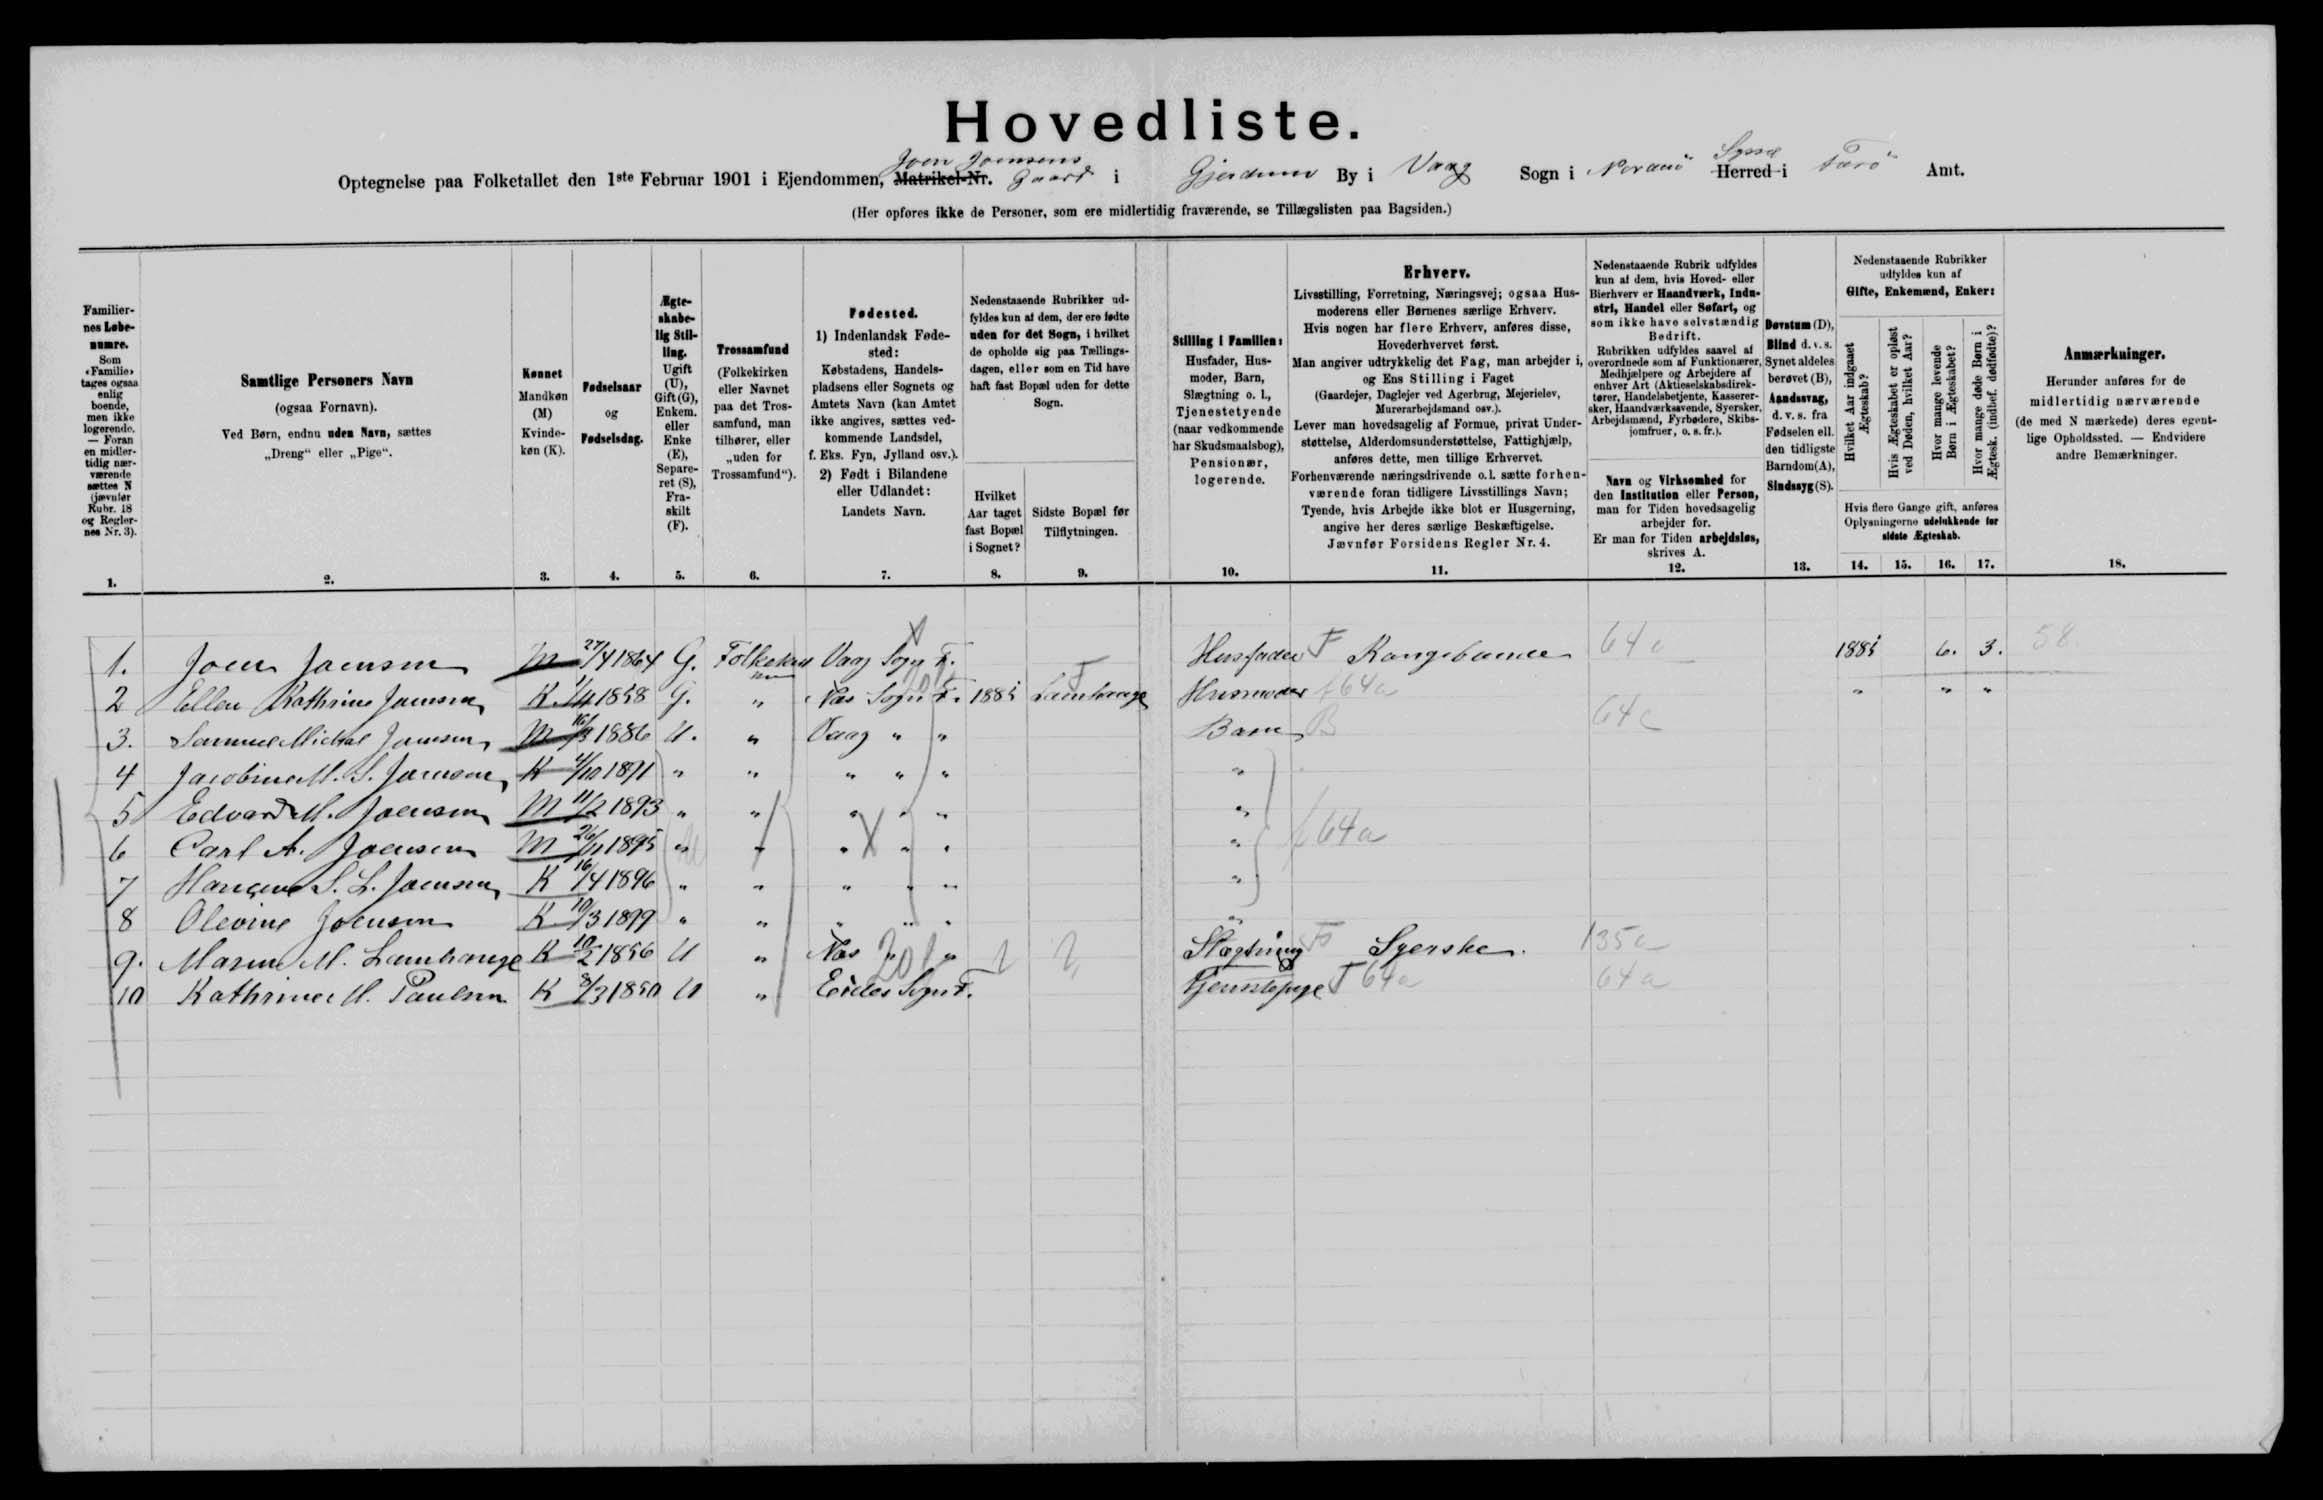 Hovedliste.
Joen Joensens Syssel
Optegnelse paa Folketallet den 1ste Februar 1901 i Ejendommen, Matrikel-Nr. Gaard i Gjerdum By i Vaag Sogn i Norderø Herred i Færø Amt.
(Her opføres ikke de Personer, som ere midlertidig fraværende, se Tillægslisten paa Bagsiden.)
Familiernes Løbenumre.
Som «Familie» tages ogsaa enlig boende, men ikke logerende. — Foran en midlertidig nærværende sættes N (jævnfør Rubr. 18 og Reglernes Nr. 3).
1.
Samtlige Personers Navn
(ogsaa Fornavn).
Ved Børn, endnu uden Navn, sættes
„Dreng“ eller „Pige“.
2.
Kønnet
Mandkøn (M)
Kvindekøn (K).
3.
Fødselsaar
og
Fødselsdag.
4.
Ægteskabelig Stilling.
Ugift (U), Gift (G), Enkem. eller Enke (E), Separeret (S), Fraskilt (F).
5.
Trossamfund
(Folkekirken eller Navnet paa det Trossamfund, man tilhører, eller „uden for Trossamfund“).
6.
Fødested.
1) Indenlandsk Fødested:
Købstadens, Handelspladsens eller Sognets og Amtets Navn (kan Amtet ikke angives, sættes vedkommende Landsdel, f. Eks. Fyn, Jylland osv.).
2) Født i Bilandene eller Udlandet:
Landets Navn.
7.
Nedenstaaende Rubrikker udfyldes kun af dem, der ere fødte uden for det Sogn, i hvilket de opholde sig paa Tællingsdagen, eller som en Tid have haft fast Bopæl uden for dette Sogn.
Hvilket Aar taget fast Bopæl i Sognet?
8.
Sidste Bopæl før Tilflytningen.
9.
Stilling i Familien:
Husfader, Husmoder, Barn, Slægtning o. l., Tjenestetyende (naar vedkommende har Skudsmaalsbog), Pensionær, logerende.
10.
Erhverv.
Livsstilling, Forretning, Næringsvej; ogsaa Husmoderens eller Børnenes særlige Erhverv.
Hvis nogen har flere Erhverv, anføres disse, Hovederhvervet først.
Man angiver udtrykkelig det Fag, man arbejder i, og Ens Stilling i Faget
(Gaardejer, Daglejer ved Agerbrug, Mejerielev, Murerarbejdsmand osv.).
Lever man hovedsagelig af Formue, privat Understøttelse, Alderdomsunderstøttelse, Fattighjælp, anføres dette, men tillige Erhvervet.
Forhenværende næringsdrivende o. l. sætte forhenværende foran tidligere Livsstillings Navn;
Tyende, hvis Arbejde ikke blot er Husgerning, angive her deres særlige Beskæftigelse.
Jævnfør Forsidens Regler Nr. 4.
11.
Nedenstaaende Rubrik udfyldes kun af dem, hvis Hoved- eller Bierhverv er Haandværk, Industri, Handel eller Søfart, og som ikke have selvstændig Bedrift.
Rubrikken udfyldes saavel af overordnede som af Funktionærer, Medhjælpere og Arbejdere af enhver Art (Aktieselskabsdirektører, Handelsbetjente, Kasserersker, Haandværkssvende, Syersker, Arbejdsmænd, Fyrbødere, Skibsjomfruer, o. s. fr.).
Navn og Virksomhed for den Institution eller Person, man for Tiden hovedsagelig arbejder for.
Er man for Tiden arbejdsløs, skrives A.
12.
Døvstum (D), Blind d. v. s. Synet aldeles berøvet (B), Aandssvag, d. v. s. fra Fødselen ell. den tidligste Barndom (A), Sindssyg (S).
13.
Nedenstaaende Rubrikker udfyldes kun af
Gifte, Enkemænd, Enker:
Hvilket Aar indgaaet Ægteskab?
Hvis Ægteskabet er opløst ved Døden, hvilket Aar?
Hvor mange levende Børn i Ægteskabet?
Hvor mange døde Børn i Ægtesk. (indbef. dødfødte)?
Hvis flere Gange gift, anføres Oplysningerne udelukkende for sidste Ægteskab.
14. 15. 16. 17.
Anmærkninger.
Herunder anføres for de midlertidig nærværende (de med N mærkede) deres egentlige Opholdssted. — Endvidere andre Bemærkninger.
18.
1. Joen Joensen M 27/4 1864 G. Folkekirken Vaag Sogn F. Husfader F Kongsbonde 64 c 1885 6. 3. 58.
2 Ellen Kathrine Joensen K 1858 G. " Næs Sogn F. 1885 Lamhauge Husmoder f 64 a " " "
3. Samuel Michal Joensen M 16/3 1886 U. " Vaag " " Barn B 64 c
4 Jacobine M. S. Joensen K 4/10 1891 " " " " " "
5 Edvard M. Joensen M 11/2 1893 " " " " " "
6 Carl A. Joensen M 26/11 1895 " " " " " " f 64 a
7 Hansine S. L. Joensen K 16/4 1896 " " " " " "
8 Olevine Joensen K 10/3 1899 " " " " " "
9. Maren M. Lamhauge K 10/2 1856 U " Næs " " 201 Slægtning F Syerske. 135 a
10 Kathrine M. Paulsen K 8/3 1850 U " Eides Sogn F. Tjenestepige T 64 a 64 a